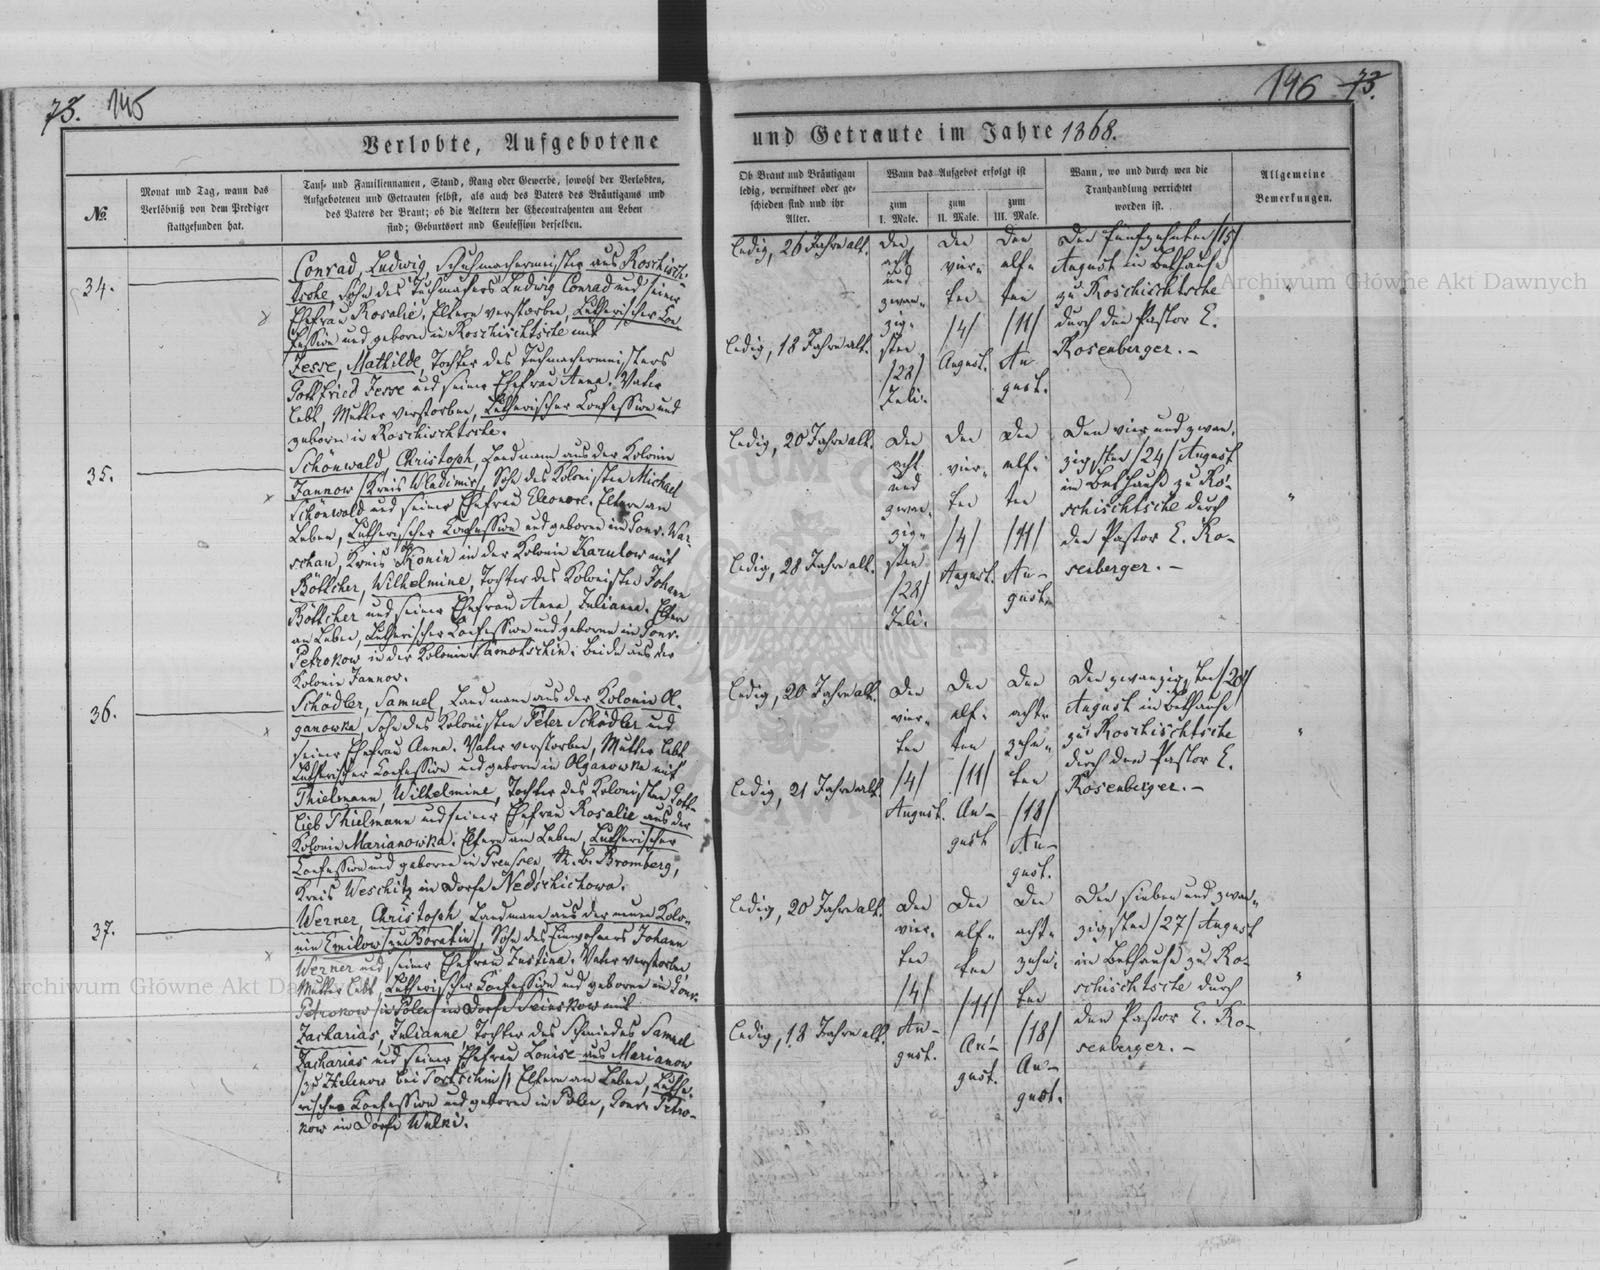 73. 145
Verlobte, Aufgebotene
№
Monat und Tag, wann das
Verlöbniß von dem Prediger
stattgefunden hat.
Tauf- und Familiennamen, Stand, Rang oder Gewerbe, sowohl der Verlobten,
Aufgebotenen und Getrauten selbst, als auch des Vaters des Bräutigams und
des Vaters der Braut; ob die Aeltern der Ehecontrahenten am Leben
sind; Geburtsort und Confession derselben.
34.
Conrad, Ludwig, Tuchmachermeister aus Roschisch-
tsche, Sohn des Tuchmachers Ludwig Conrad und seiner
Ehefrau Rosalie, Eltern verstorben, Lutherischer Con-
fession und geboren in Roschischtsche mit
Jesse, Mathilde, Tochter des Tuchmachermeisters
Gottfried Jesse und seiner Ehefrau Anna. Vater
lebt, Mutter verstorben, Lutherischer Confession und
geboren in Roschischtsche.
35.
Schönwald, Christoph, Landmann aus der Kolonie
Jannow /Kreis Wladimir/, Sohn des Kolonisten Michael
Schönwald und seiner Ehefrau Eleonore. Eltern am
Leben, Lutherischer Confession und geboren im Gouv. War-
schau, Kreis Konin in der Kolonie Karulow mit
Böttcher, Wilhelmine, Tochter des Kolonisten Johann
Böttcher und seiner Ehefrau Anna, Julianna. Eltern
am Leben, Lutherischer Confession und geboren im Gouv.
Petrokow in der Kolonie. Beide aus der
Kolonie Jannow.
36.
Schödler, Samuel, Landmann aus der Kolonie Ol-
ganowka, Sohn des Kolonisten Peter Schödler und
seiner Ehefrau Anna. Vater verstorben, Mutter lebt
Lutherischer Confession und geboren in Olganowka mit
Thielmann, Wilhelmine, Tochter des Kolonisten Gott-
lieb Thielmann und seiner Ehefrau Rosalie aus der
Kolonie Marianowka. Eltern am Leben, Lutherischer
Confession und geboren in Preussen, R. B. Bromberg,
Kreis Weschitz im Dorfe Nedschichowa.
37.
Werner, Christoph, Landmann aus der neuen Kolo-
nie Emilow /zu Boratin/, Sohn des Einwohners Johann
Werner und seiner Ehefrau Justina. Vater verstorben,
Mutter lebt, Lutherischer Confession und geboren im Gouv.
Petrokow in Polen im Dorfe mit
Zacharias, Julianne, Tochter des Schmiedes Samuel
Zacharias und seiner Ehefrau Louise aus Marianow
/zu Helenow bei Tortschin/, Eltern am Leben, Luthe-
rischer Confession und geboren in Polen, Gouv. Petro-
kow im Dorfe Wulki.
146 73.
und Getraute im Jahre 1868.
Ob Braut und Bräutigam
ledig, verwittwet oder ge-
schieden sind und ihr
Alter.
Wann das Aufgebot erfolgt ist
zum
I. Male.
zum
II. Male.
zum
III. Male.
Wann, wo und durch wen die
Trauhandlung verrichtet
worden ist.
Allgemeine
Bemerkungen.
ledig, 26 Jahre alt.
ledig, 18 Jahre alt.
den
acht
und
zwan-
zig-
sten
/28/
Juli.
den
vier-
ten
/4/
August.
den
elf-
ten
/11/
Au-
gust.
Den fünfzehnten /15/
August im Bethause
zu Roschischtsche
durch den Pastor E.
Rosenberger. –
ledig, 20 Jahre alt.
ledig, 28 Jahre alt.
den
acht
und
zwan-
zig-
sten
/28/
Juli.
den
vier-
ten
/4/
August.
den
elf-
ten
/11/
Au-
gust.
Den vier und zwan-
zigsten /24/ August
im Bethause zu Ro-
schischtsche durch
den Pastor E. Ro-
senberger. –
"
ledig, 20 Jahre alt.
ledig, 21 Jahre alt.
den
vier-
ten
/4/
August.
den
elf-
ten
/11/
Au-
gust
den
acht-
zehn-
ten
/18/
Au-
gust.
Den zwanzigsten /20/
August im Bethause
zu Roschischtsche
durch den Pastor E.
Rosenberger. –
"
ledig, 20 Jahre alt.
ledig, 18 Jahre alt.
den
vier-
ten
/4/
Au-
gust.
den
elf-
ten
/11/
Au-
gust.
den
acht-
zehn-
ten
/18/
Au-
gust.
Den sieben und zwan-
zigsten /27/ August
im Bethause zu Ro-
schischtsche durch
den Pastor E. Ro-
senberger. –
"
Archiwum Główne Akt Dawnych
Archiwum Główne Akt Dawnych